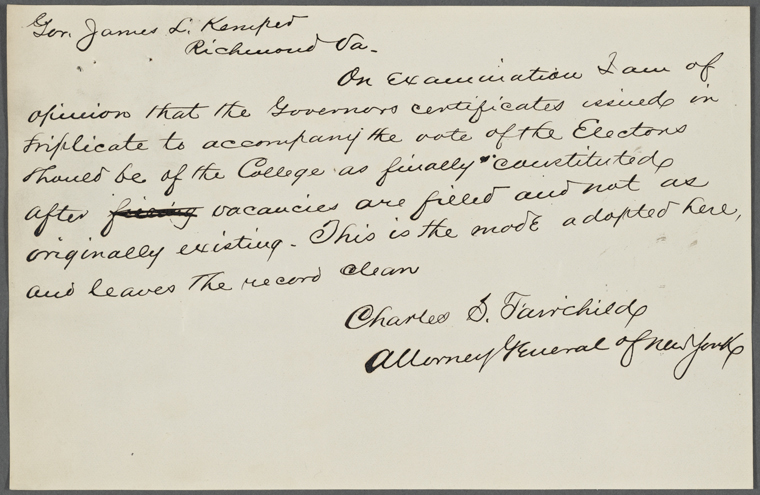 Gov. James L. Kemper
Richmond Va.
On examination I am of
opinion that the Governors certificates issued in
triplicate to accompany the vote of the Electors
should be of the College as finally constituted
after filling vacancies are filled and not as
originally existing. This is the mode adopted here,
and leaves the record clean
Charles S. Fairchild
Attorney General of New York